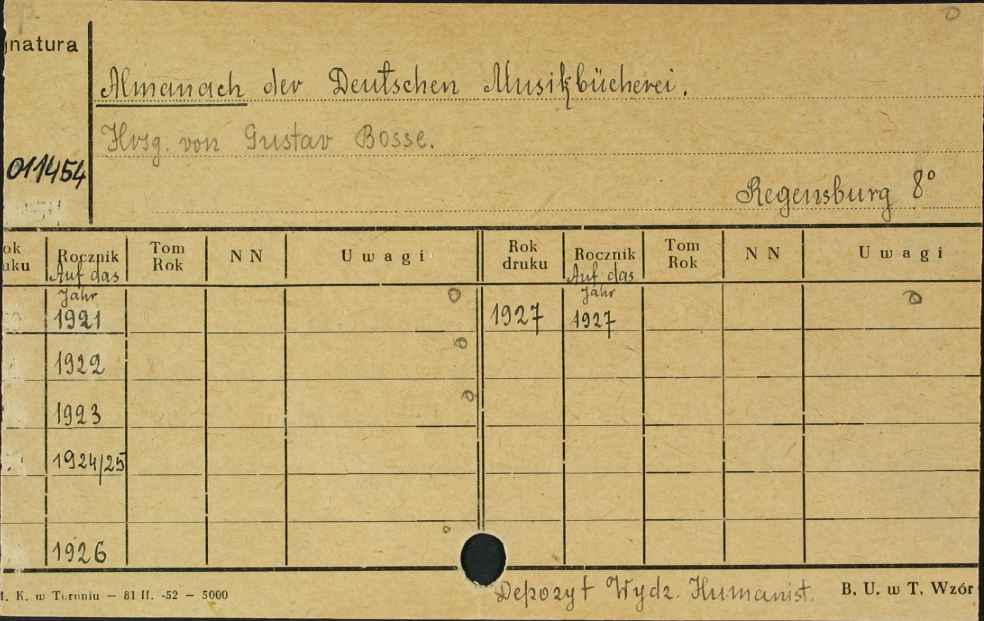 natura
Almanach der Deutschen Musikbücherei.
Hrsg. von Gustav Bosse.
011454
Regensburg 8°
ok
uku
Rocznik
Tom
Rok
N N
Uwagi
Rok
druku
Rocznik
Tom
Rok
N N
Uwagi
Auf das
Jahr
Auf das
Jahr
1921
1927
1927
1922
1923
1924/25
1926
Depozyt Wydz. Humanist.
K. w Toruniu – 81 II. -52 – 5000
B. U. w T. Wzór